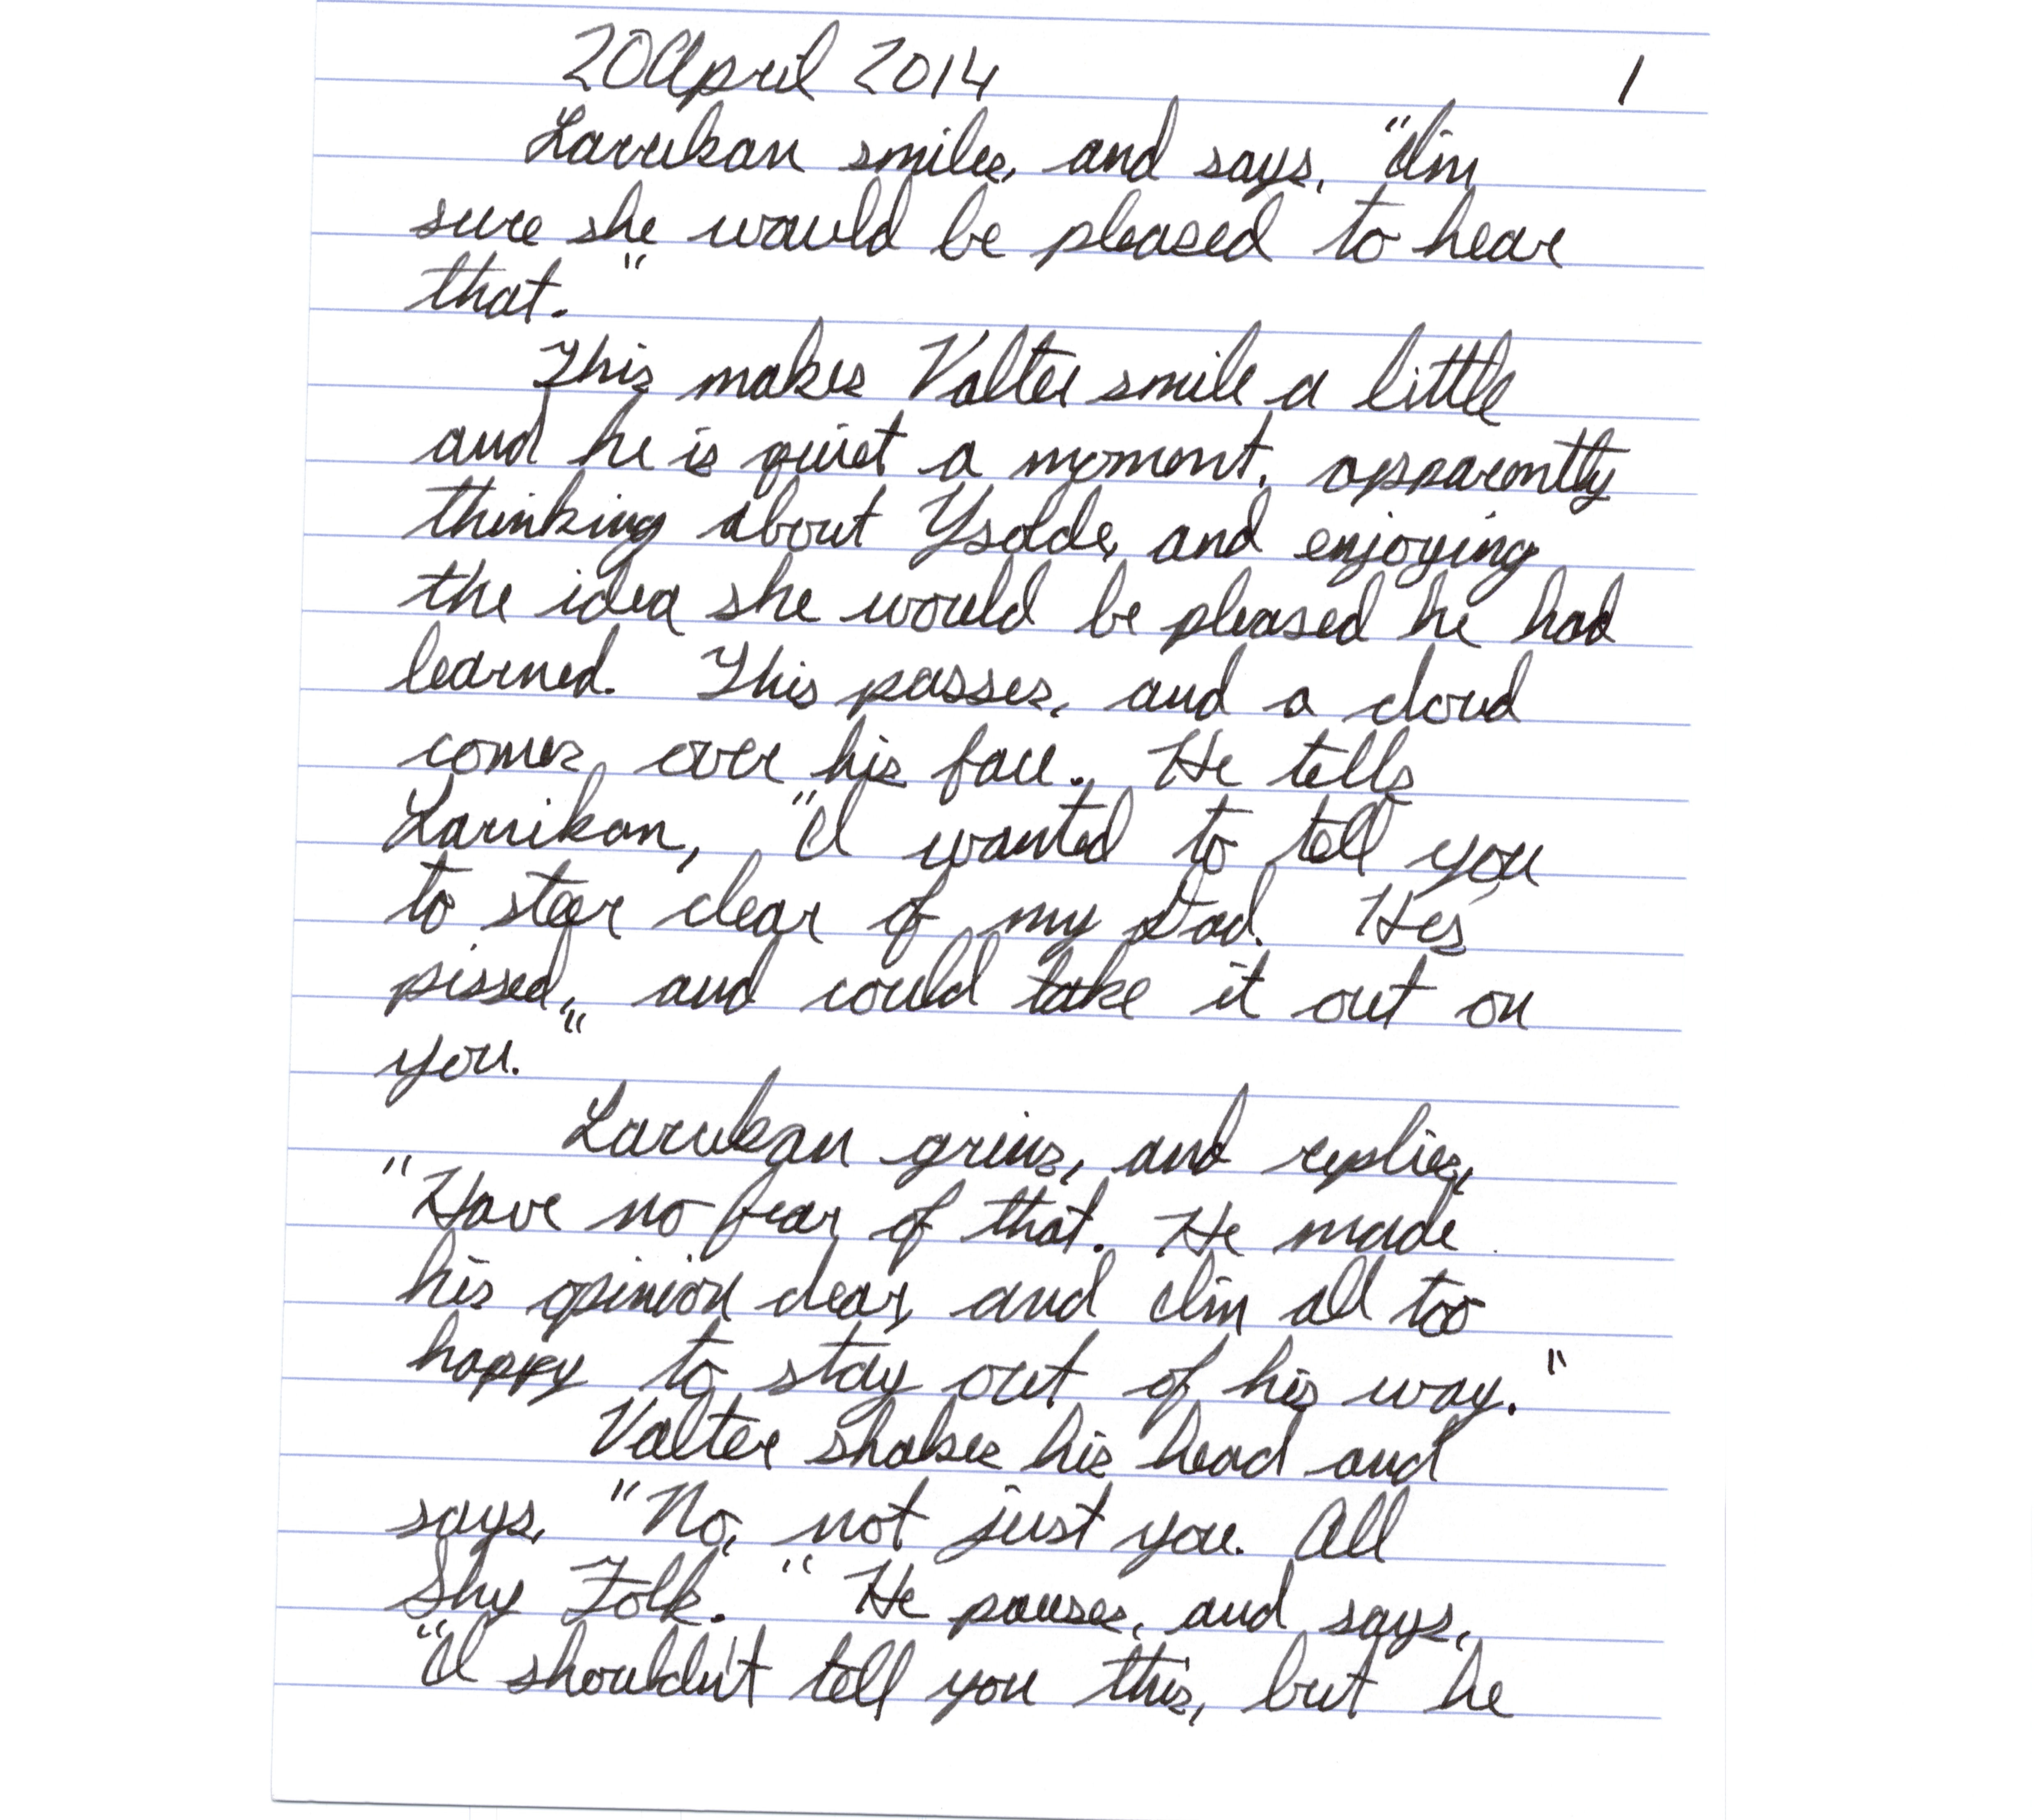 20 April 2014 1
Larrikan smiles, and says, "I'm
sure she would be pleased to hear
that."
This makes Valter smile a little
and he is quiet a moment, apparently
thinking about Ysolde, and enjoying
the idea she would be pleased he had
learned. This passes, and a cloud
comes over his face. He tells
Larrikan, "I wanted to tell you
to steer clear of my Dad. He's
pissed, and could take it out on
you."
Larrikan grins, and replies,
"Have no fear of that. He made
his opinion clear, and I'm all too
happy to stay out of his way."
Valter shakes his head and
says, "No, not just you. All
Shy Folk." He pauses, and says,
"I shouldn't tell you this, but he